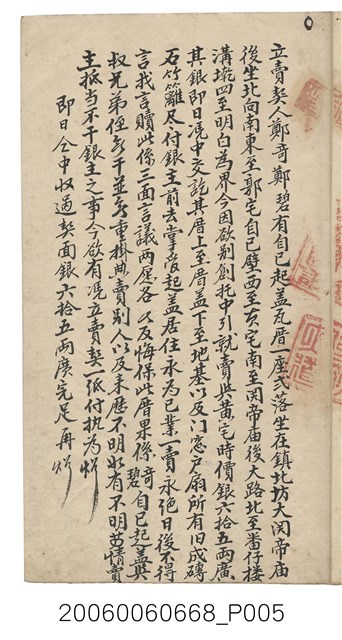 立賣契人鄭奇鄭碧有自己起盖瓦厝一座弍落坐在鎮北坊大関帝庙
後坐北向南東至郭宅自己壁西至宅南至関帝庙後大路北至番仔楼
溝墘四至明白為界今因欲别創托中引就賣與黄宅時價銀六拾五両廣
其銀即日凴中交訖其厝上至厝盖下至地基以及門窓户扇所有旧成磚
石竹籬尽付銀主前去掌管起盖居住永為己業一賣永絶日後不得
言找言贖此係三面言議両愿各反悔保此厝果係奇碧自己起盖與
叔兄弟侄無干並無重掛典賣别人以及来歷不明如有不明等情賣
主抵当不干銀主之事今欲有凴立賣契一紙付执為炤
即日仝中收過契面銀六拾五両廣完足再炤
20060060668_P005